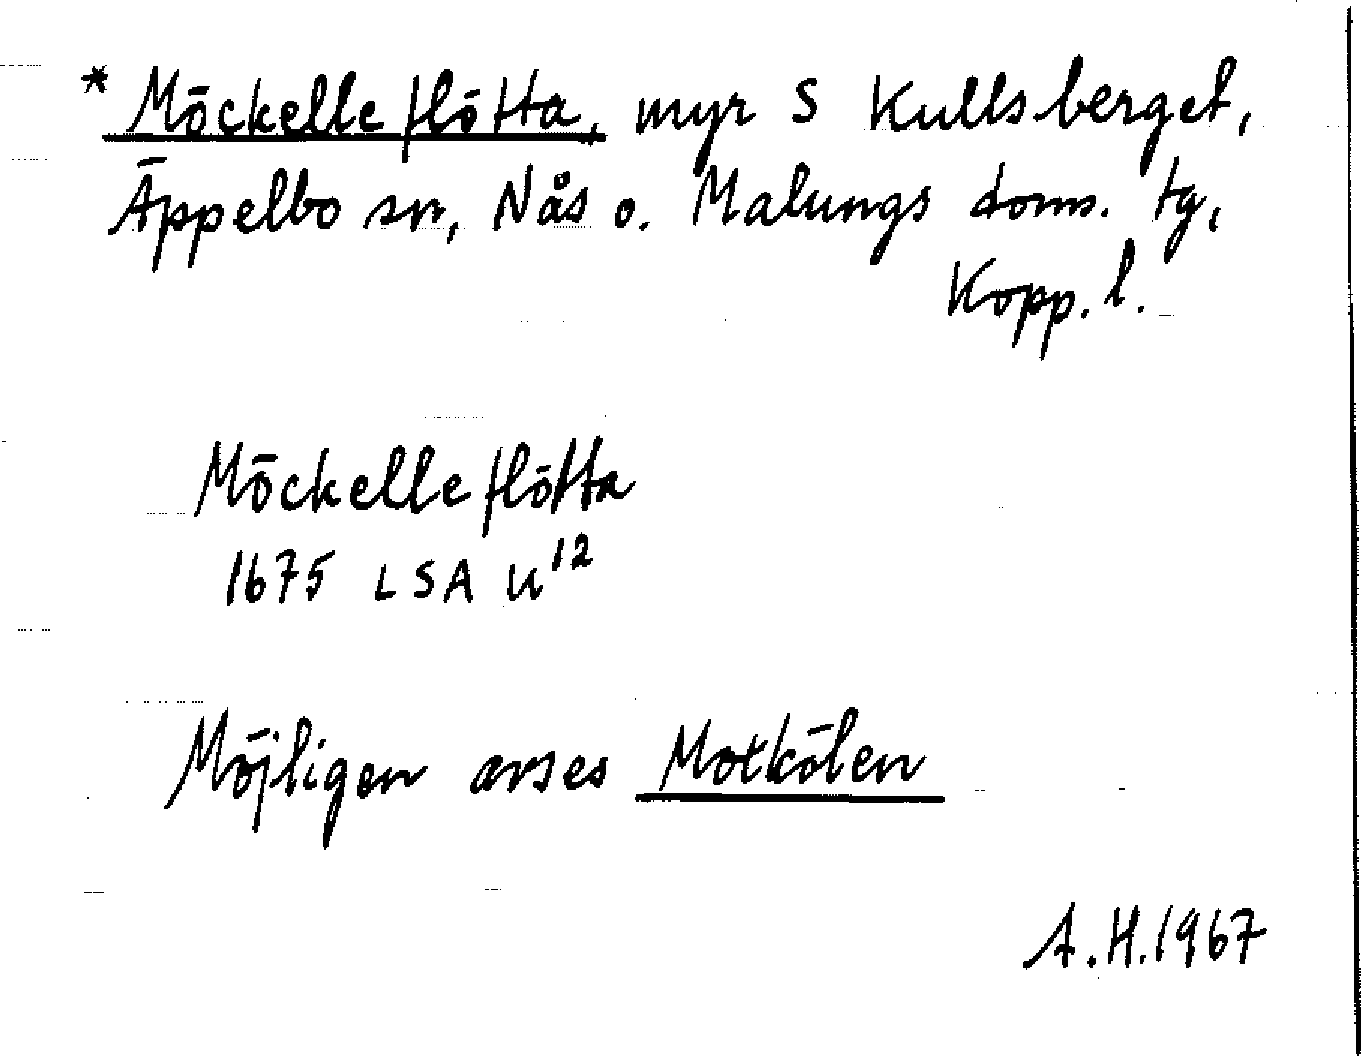 * Möckelleflötta, myr S Kullsberget,
Äppelbo sn, Nås o. Malungs doms. tg,
Kopp. l.
Möckelleflötta
1675 LSA U¹²
Möjligen avses Motkölen
A.H. 1967